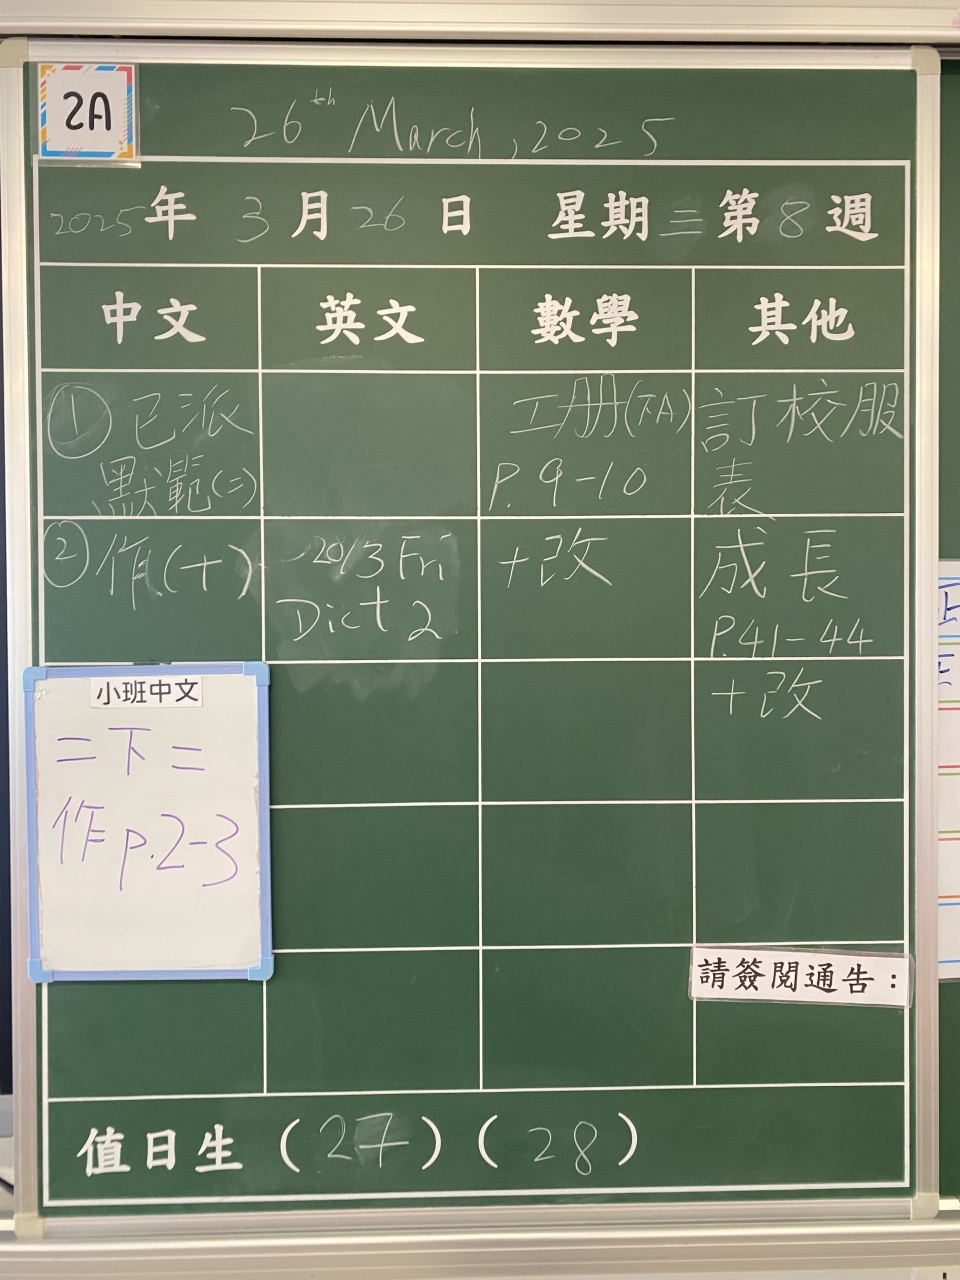 2A
26th March, 2025
2025年 3月26日 星期三第8週
中文 英文 數學 其他
① 已派
默範(二)
② 作(十)
Fri
Dict 2
工册(下A)
P. 9-10
+改
訂校服
表
成長
P.41-44
+改
小班中文
二下二
作 p.2-3
請簽閱通告：
值日生 (27) (28)